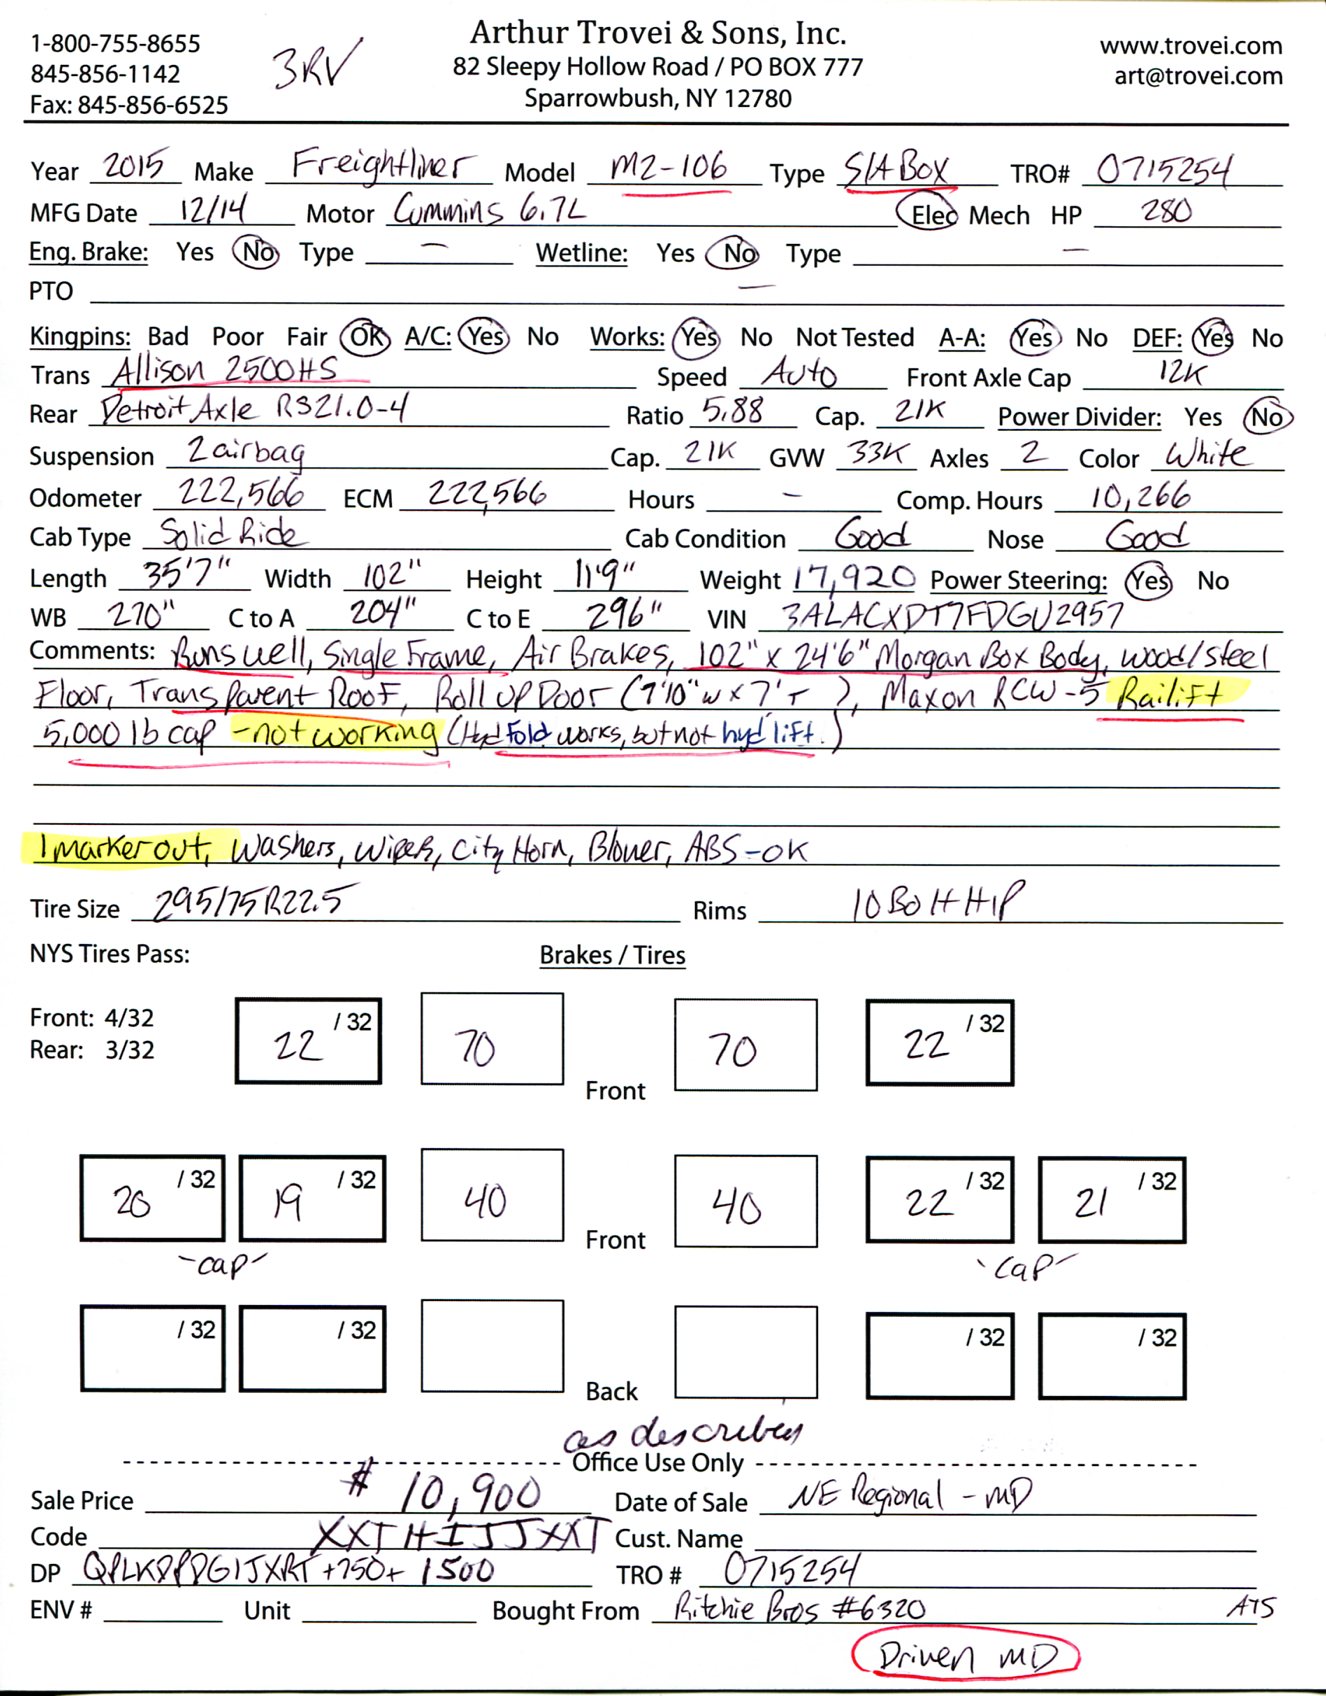 1-800-755-8655
845-856-1142
Fax: 845-856-6525
3RV
Arthur Trovei & Sons, Inc.
82 Sleepy Hollow Road / PO BOX 777
Sparrowbush, NY 12780
www.trovei.com
art@trovei.com
Year 2015 Make Freightliner Model M2-106 Type S/A Box TRO# 0715254
MFG Date 12/14 Motor Cummins 6.7L Elec Mech HP 280
Eng. Brake: Yes No Type — Wetline: Yes No Type —
PTO —
Kingpins: Bad Poor Fair OK A/C: Yes No Works: Yes No Not Tested A-A: Yes No DEF: Yes No
Trans Allison 2500HS Speed Auto Front Axle Cap 12K
Rear Detroit Axle RS21.0-4 Ratio 5.88 Cap. 21K Power Divider: Yes No
Suspension 2 airbag Cap. 21K GVW 33K Axles 2 Color White
Odometer 222,566 ECM 222,566 Hours - Comp. Hours 10,266
Cab Type Solid Ride Cab Condition Good Nose Good
Length 35'7" Width 102" Height 11'9" Weight 17,920 Power Steering: Yes No
WB 270" C to A 204" C to E 296" VIN 3ALACXDT7FDGU2957
Comments: Runs well, Single Frame, Air Brakes, 102" x 24'6" Morgan Box Body, wood/steel
Floor, Transparent Roof, Roll Up Door (7'10"w x 7'T ), Maxon RCW-5 Railift
5,000 lb cap - not working (Hyd Fold works, but not hyd lift.)
1 marker out, Washers, Wipers, City Horn, Blower, ABS-OK
Tire Size 295/75R22.5 Rims 10 Bolt HP
NYS Tires Pass: Brakes / Tires
Front: 4/32
Rear: 3/32
22 /32 70 Front 70 22 /32
20 /32 19 /32 40 Front 40 22 /32 21 /32
-cap- -cap-
/32 /32 Back /32 /32
as described
Office Use Only
Sale Price $10,900 Date of Sale NE Regional - MD
Code XXTHIJJXXT Cust. Name
DP +750+ 1500 TRO # 0715254
ENV # Unit Bought From Ritchie Bros #6320 ATS
Driven MD